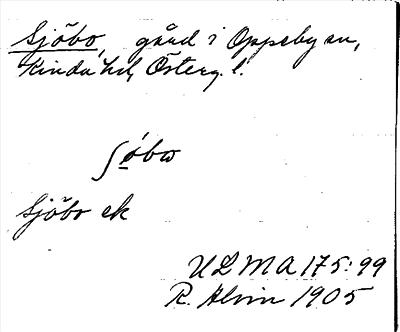 Sjöbo, gård i Oppeby sn,
Kinda hd, Österg. l.
ʃǿbω
Sjöbo ek
ULMA 175:99
R. Alvin 1905